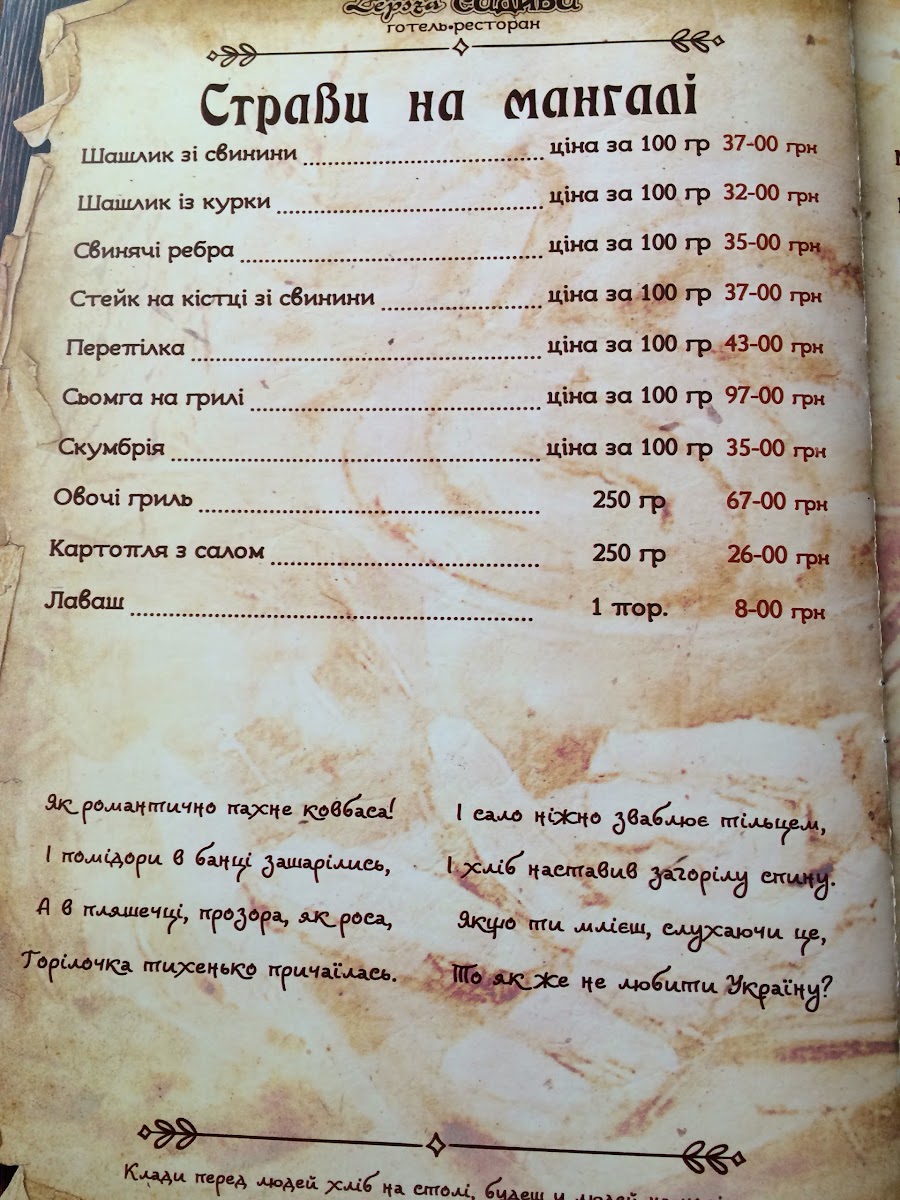 Садиба
готель•ресторан
Страви на мангалі
Шашлик зі свинини ціна за 100 гр 37-00 грн
Шашлик із курки ціна за 100 гр 32-00 грн
Свинячі ребра ціна за 100 гр 35-00 грн
Стейк на кістці зі свинини ціна за 100 гр 37-00 грн
Перепілка ціна за 100 гр 43-00 грн
Сьомга на грилі ціна за 100 гр 97-00 грн
Скумбрія ціна за 100 гр 35-00 грн
Овочі гриль 250 гр 67-00 грн
Картопля з салом 250 гр 26-00 грн
Лаваш 1 пор. 8-00 грн
Як романтично пахне ковбаса!
І помідори в банці зашарілись,
А в пляшечці, прозора, як роса,
Горілочка тихенько причаїлась.
І сало ніжно зваблює тільцем,
І хліб наставив загорілу спину.
Якщо ти млієш, слухаючи це,
То як же не любити Україну?
Клади перед людей хліб на столі, будеш у людей на